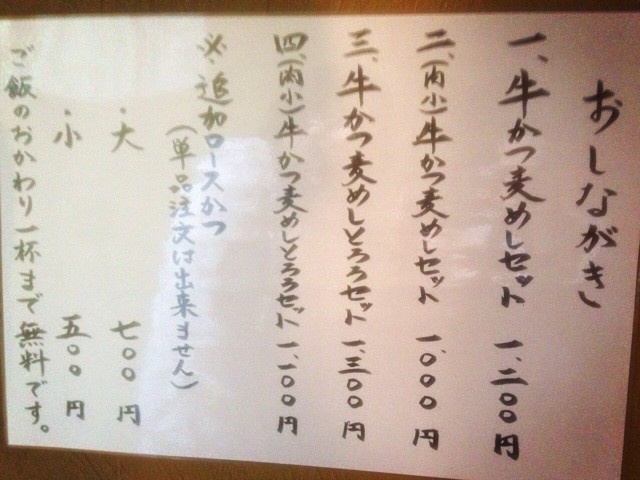 おしながき
一、牛かつ麦めしセット 一、二〇〇円
二、(肉小)牛かつ麦めしセット 一、〇〇〇円
三、牛かつ麦めしとろろセット 一、三〇〇円
四、(肉小)牛かつ麦めしとろろセット 一、一〇〇円
※追加ロースかつ
(単品注文は出来ません)
・大 七〇〇円
・小 五〇〇円
ご飯のおかわり一杯まで無料です。